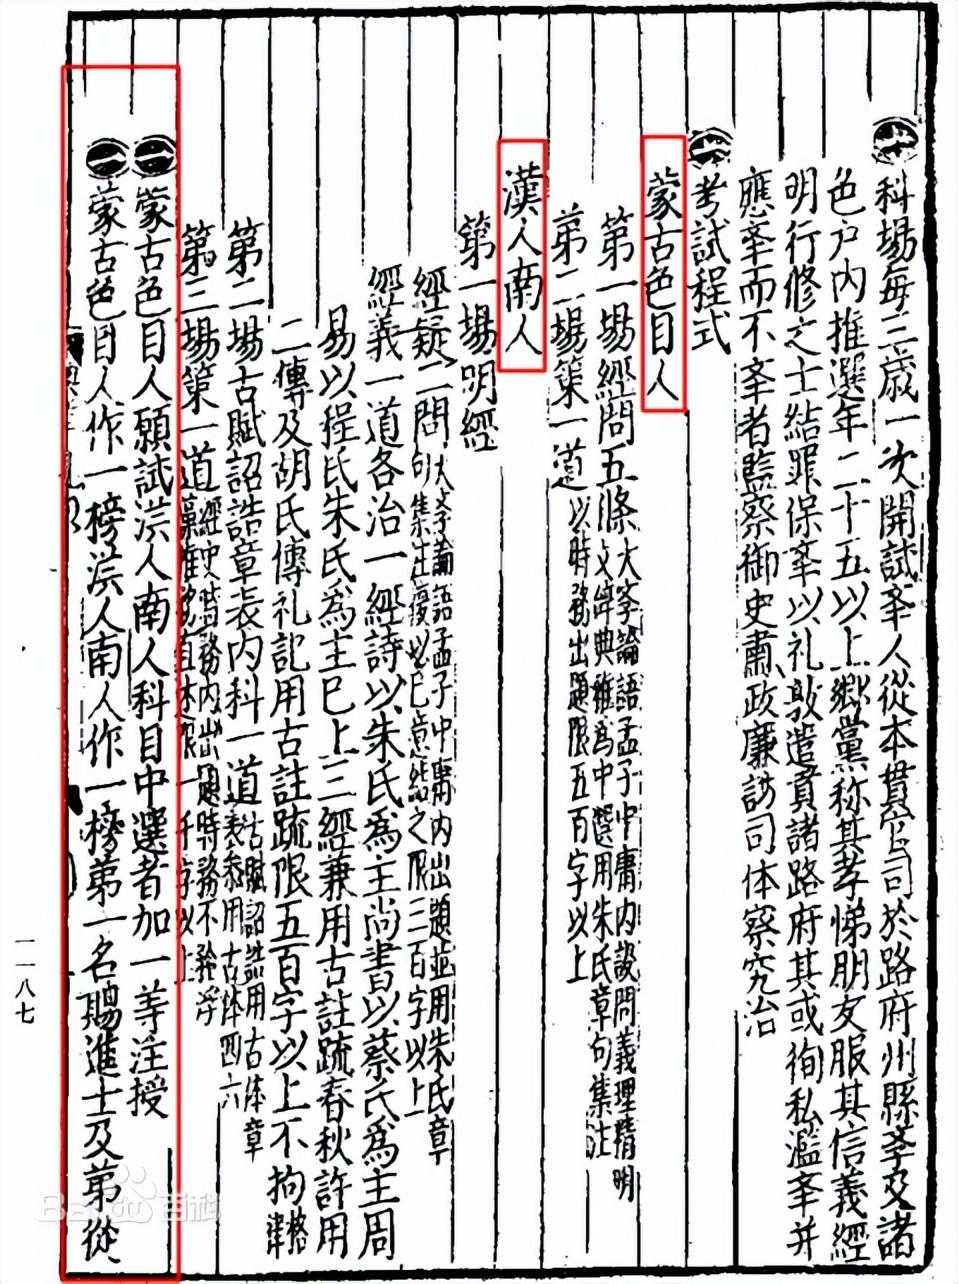 科場每三歳一次開試举人從本貫官司於路府州縣举及諸
色户内推選年二十五以上鄉黨称其孝悌朋友服其信義經
明行修之士結罪保举以礼敦遣貢諸路府其或徇私濫举并
應举而不举者監察御史肅政廉訪司体察究治
考試程式
蒙古色目人
第一場經問五條大学論語孟子中庸内設問義理精明
文辞典雅爲中選用朱氏章句集註
第二場策一道以時務出題限五百字以上
漢人南人
第一場明經
經疑二問大学論語孟子中庸内出題並用朱氏章
句集註復以己意結之限三百字以上
經義一道各治一經詩以朱氏爲主尚書以蔡氏爲主周
易以程氏朱氏爲主已上三經兼用古註疏春秋許用
二傳及胡氏傳礼記用古註疏限五百字以上不拘格
律
第二場古賦詔誥章表内科一道古賦詔誥用古体章
表参用古体四六
第三場策一道經史時務内出題時務不矜浮
藻惟務直述限一千字以上
蒙古色目人願試漢人南人科目中選者加一等注授
蒙古色目人作一榜漢人南人作一榜第一名賜進士及第從
一一八七
Bai 百科